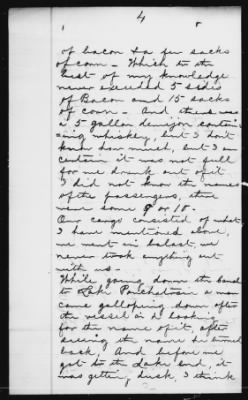 4
of bacon & a few sacks
of corn - Which to the
best of my knowledge
never exceeded 5 sides
of Bacon and 15 sacks
of corn - And there was
a 5 gallon demijon contain
ing whiskey, but I don't
know how much, but I am
certain it was not full
for we drank out of it
I did not know the names
of the passengers, there
were some 8 or 10 -
Our cargo consisted of what
I have mentioned above,
we went in balast, we
never took anything out
with us -
While going down the canal
to Lake Ponchatrain a man
came galloping down after
the vessel in a looking
for the name of it, after
seeing the name he turned
back, And before we
got to the Lake end, it
was getting dusk, I think